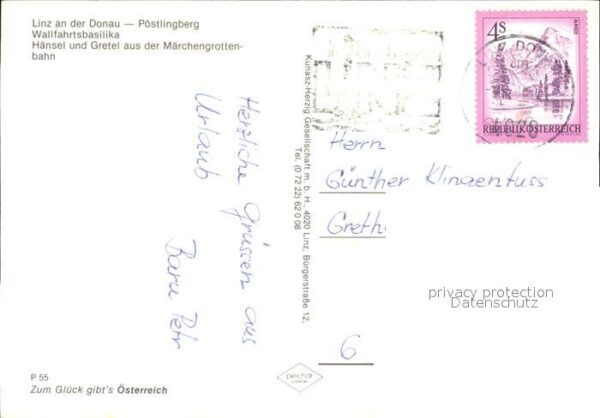 Linz an der Donau — Pöstlingberg
Wallfahrtsbasilika
Hänsel und Gretel aus der Märchengrotten-
bahn
Herzliche Grüssen aus
Urlaub
Petr
Kunasz-Herzig Gesellschaft m. b. H., 4020 Linz, Bürgerstraße 12,
Tel. (0 72 22) 62 0 08
4S
ALMSEE
REPUBLIK ÖSTERREICH
4020
Herrn
Günther Klingenfuss
Greth.
6
privacy protection
Datenschutz
P 55
Zum Glück gibt's Österreich